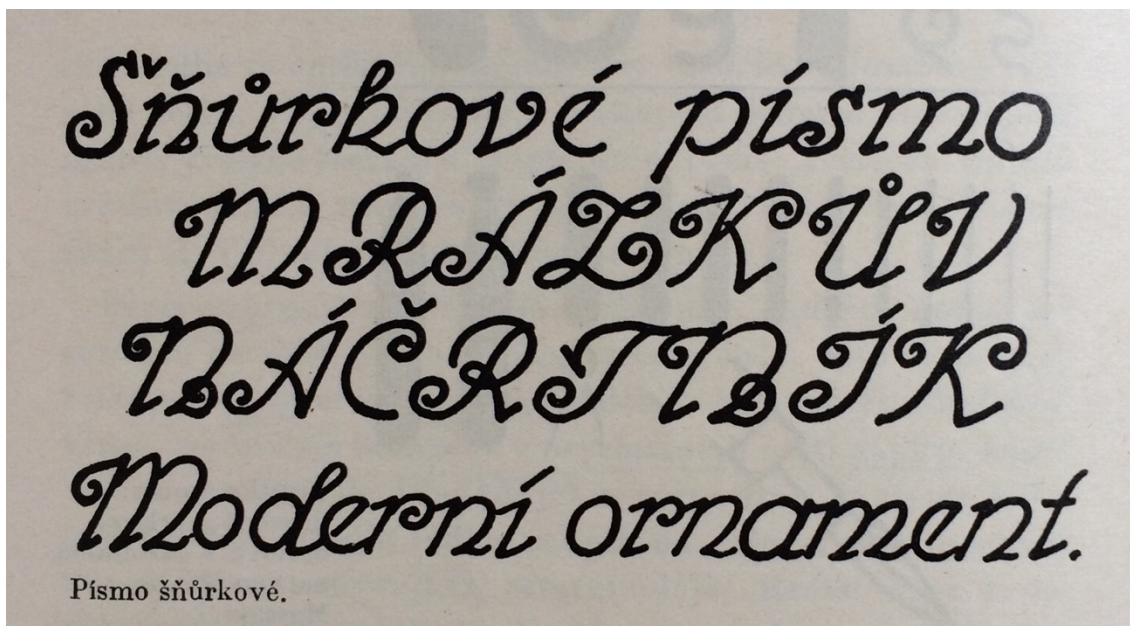 Šňůrkové písmo
MRÁZKŮV
NÁČRTNÍK
Moderní ornament.
Písmo šňůrkové.